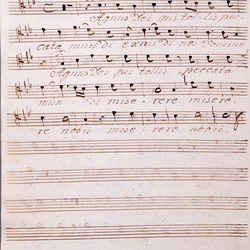 Agnus Dei qui tollis pec
cata mundi exaudi nos Domine
Agnus Dei qui tollis peccata
mun di mise rere misere
re nobis mise rere nobis.